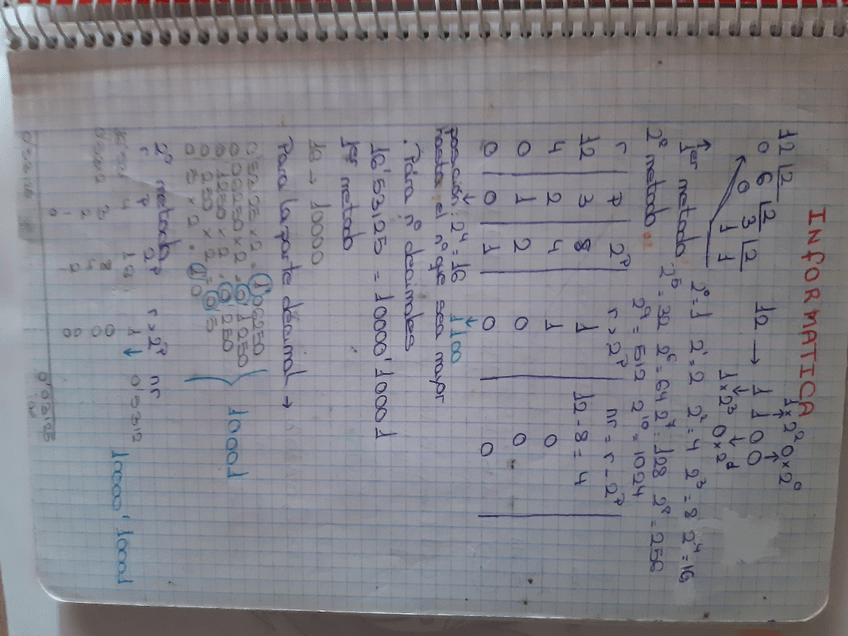 INFORMATICA
1×2² 0×2⁰
12 |2 12 → 1 1 0 0
0 6 |2 1×2³ 0×2¹
0 3 |2
1 1
1er metodo 2⁰=1 2¹=2 2²=4 2³=8 2⁴=16
2⁵=32 2⁶=64 2⁷=128 2⁸=256
2º metodo 2⁹=512 2¹⁰=1024
r P 2ᴾ r>2ᴾ nr=r-2ᴾ
12 3 8 1 12-8=4
4 2 4 1 0
0 1 2 0 0
0 0 1 0 0
posición: 2⁴=16 1100
hasta el nº que sea mayor
· Para nº decimales
16'53125 = 10000'10001
1er metodo
16 → 10000
Para la parte decimal →
0'53125×2=1'06250
0'06250×2=0'1250
0'1250×2=0'250
0'250×2=0'5
0'5×2=1'0
10001
2º metodo
r P 2ᴾ r>2ᴾ nr
10000'10001